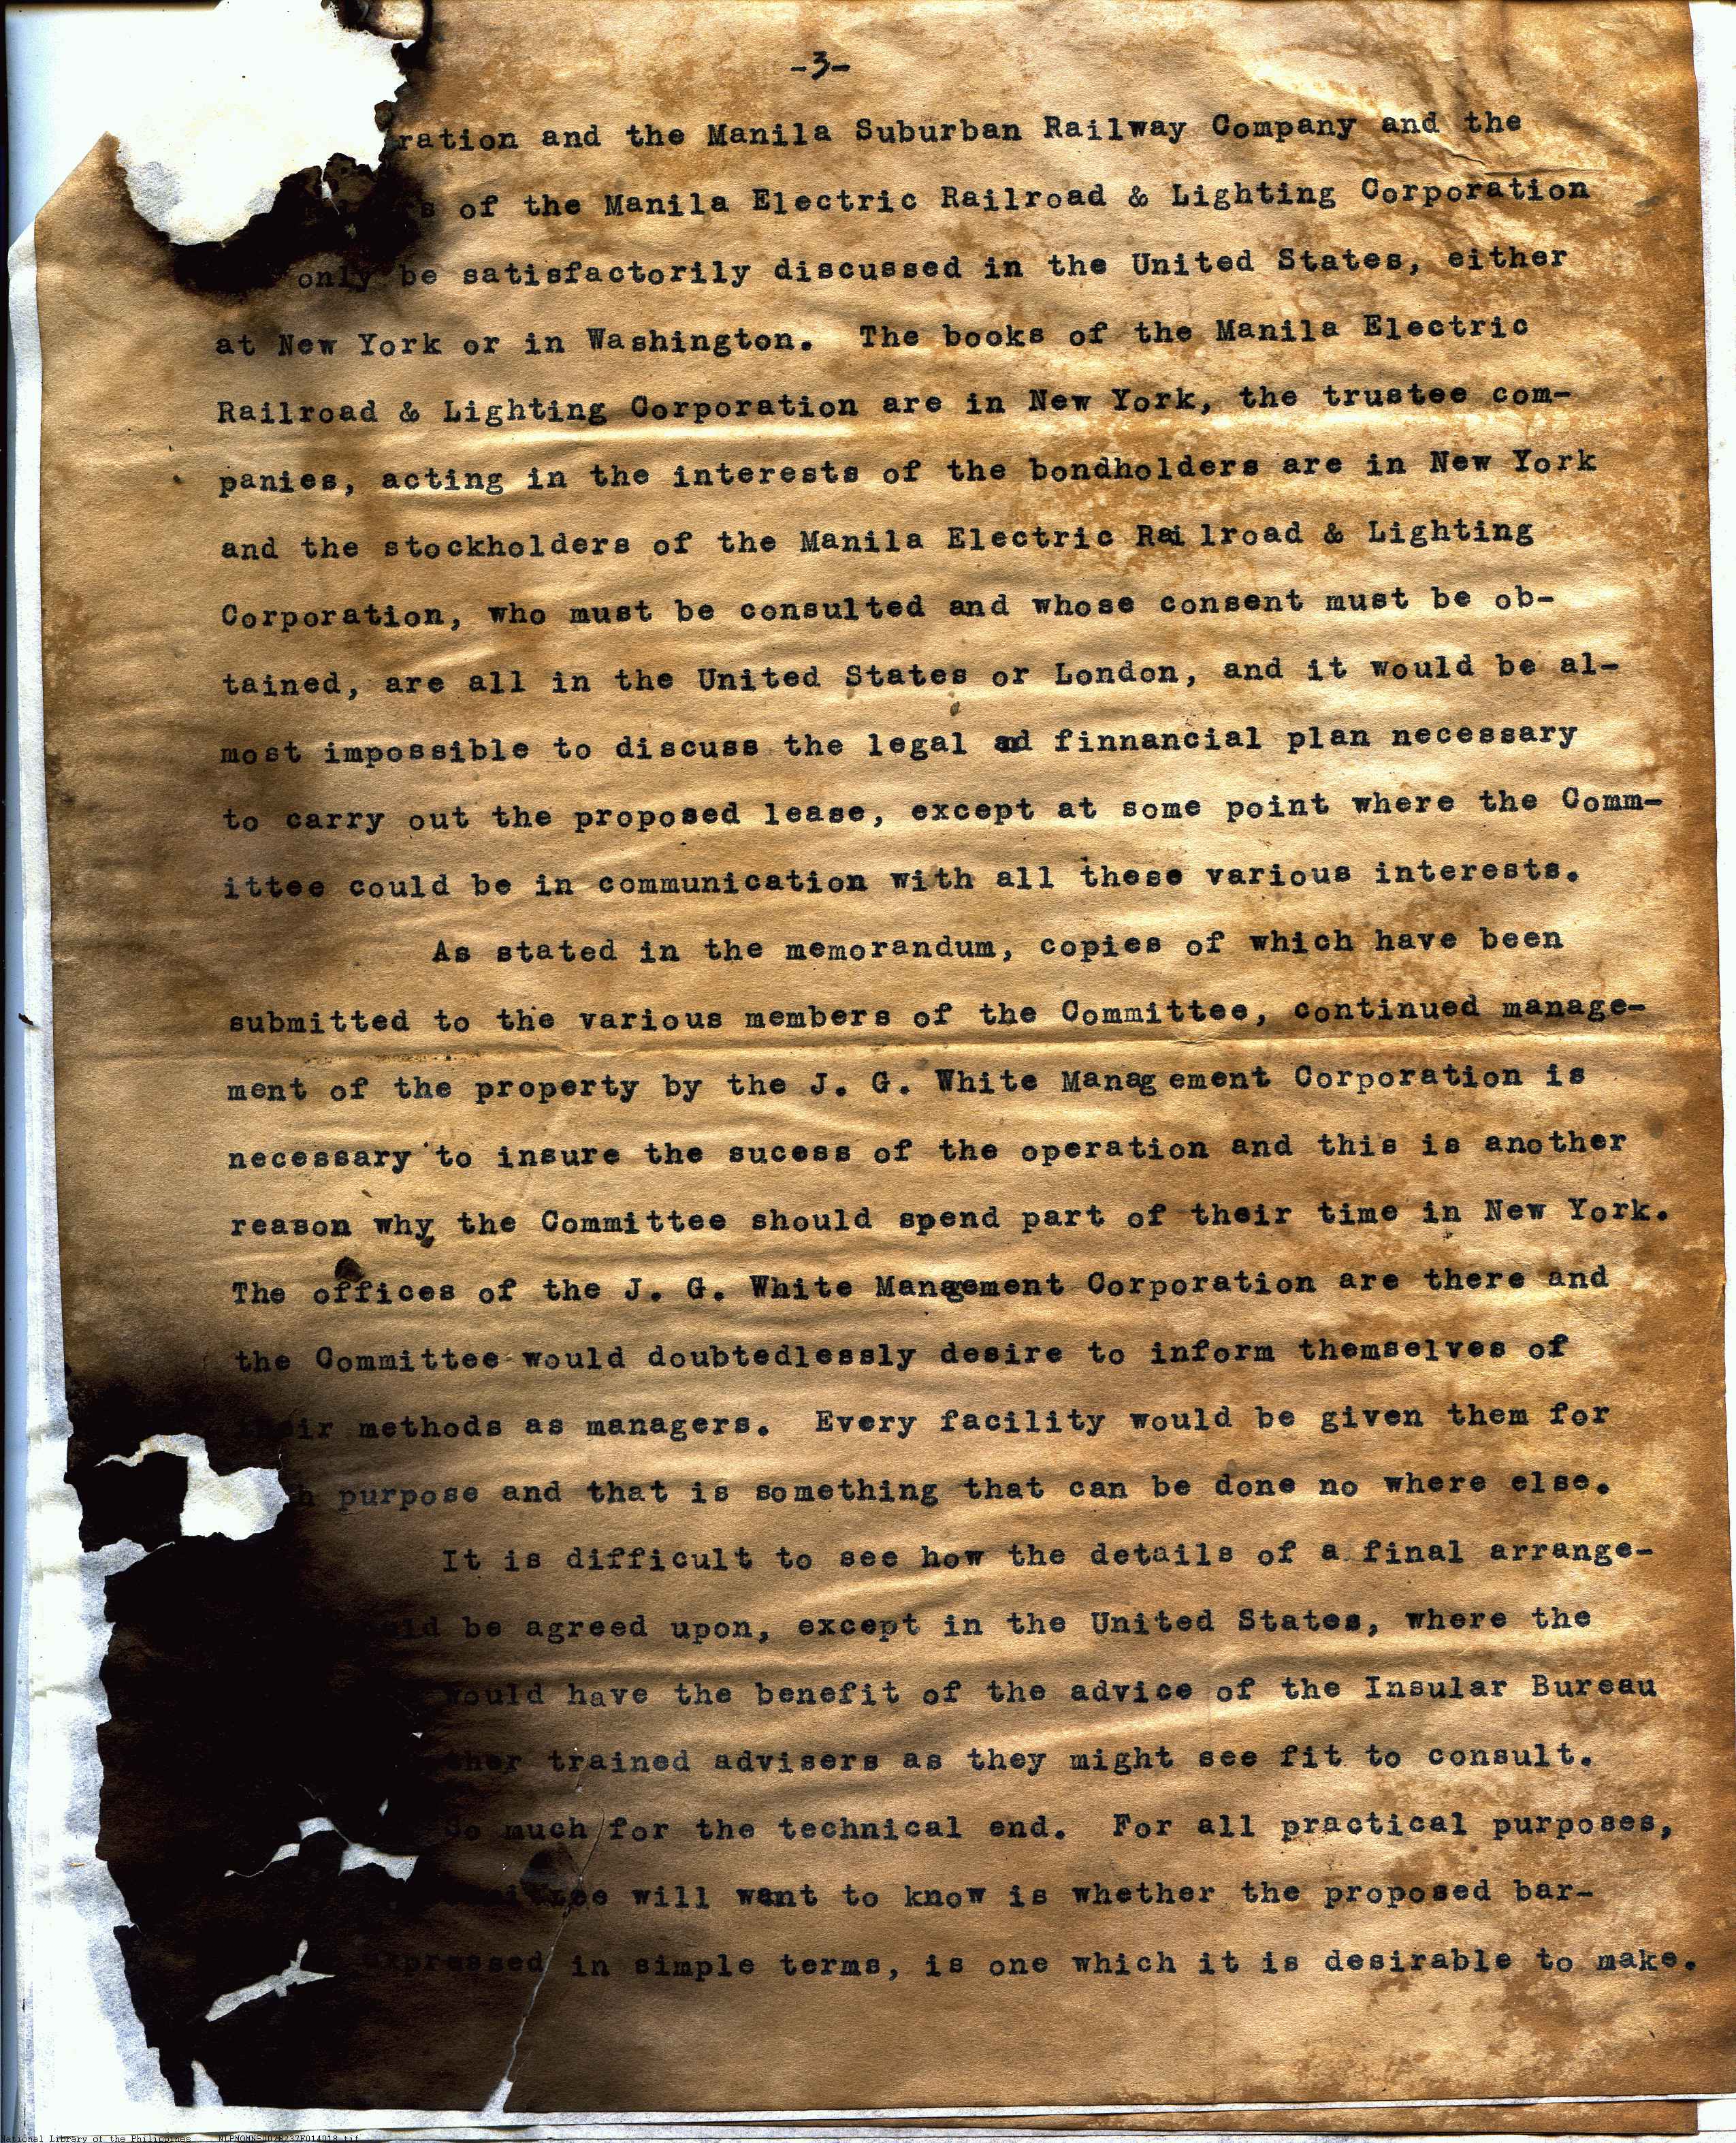 -3-
ration and the Manila Suburban Railway Company and the
s of the Manila Electric Railroad & Lighting Corporation
only be satisfactorily discussed in the United States, either
at New York or in Washington. The books of the Manila Electric
Railroad & Lighting Corporation are in New York, the trustee com-
panies, acting in the interests of the bondholders are in New York
and the stockholders of the Manila Electric Railroad & Lighting
Corporation, who must be consulted and whose consent must be ob-
tained, are all in the United States or London, and it would be al-
most impossible to discuss the legal and finnancial plan necessary
to carry out the proposed lease, except at some point where the Comm-
ittee could be in communication with all these various interests.
As stated in the memorandum, copies of which have been
submitted to the various members of the Committee, continued manage-
ment of the property by the J. G. White Management Corporation is
necessary to insure the sucess of the operation and this is another
reason why the Committee should spend part of their time in New York.
The offices of the J. G. White Management Corporation are there and
the Committee would doubtedlessly desire to inform themselves of
their methods as managers. Every facility would be given them for
purpose and that is something that can be done no where else.
It is difficult to see how the details of a final arrange-
be agreed upon, except in the United States, where the
would have the benefit of the advice of the Insular Bureau
ther trained advisers as they might see fit to consult.
So much for the technical end. For all practical purposes,
mittee will want to know is whether the proposed bar-
expressed in simple terms, is one which it is desirable to make.
National Library of the Philippines